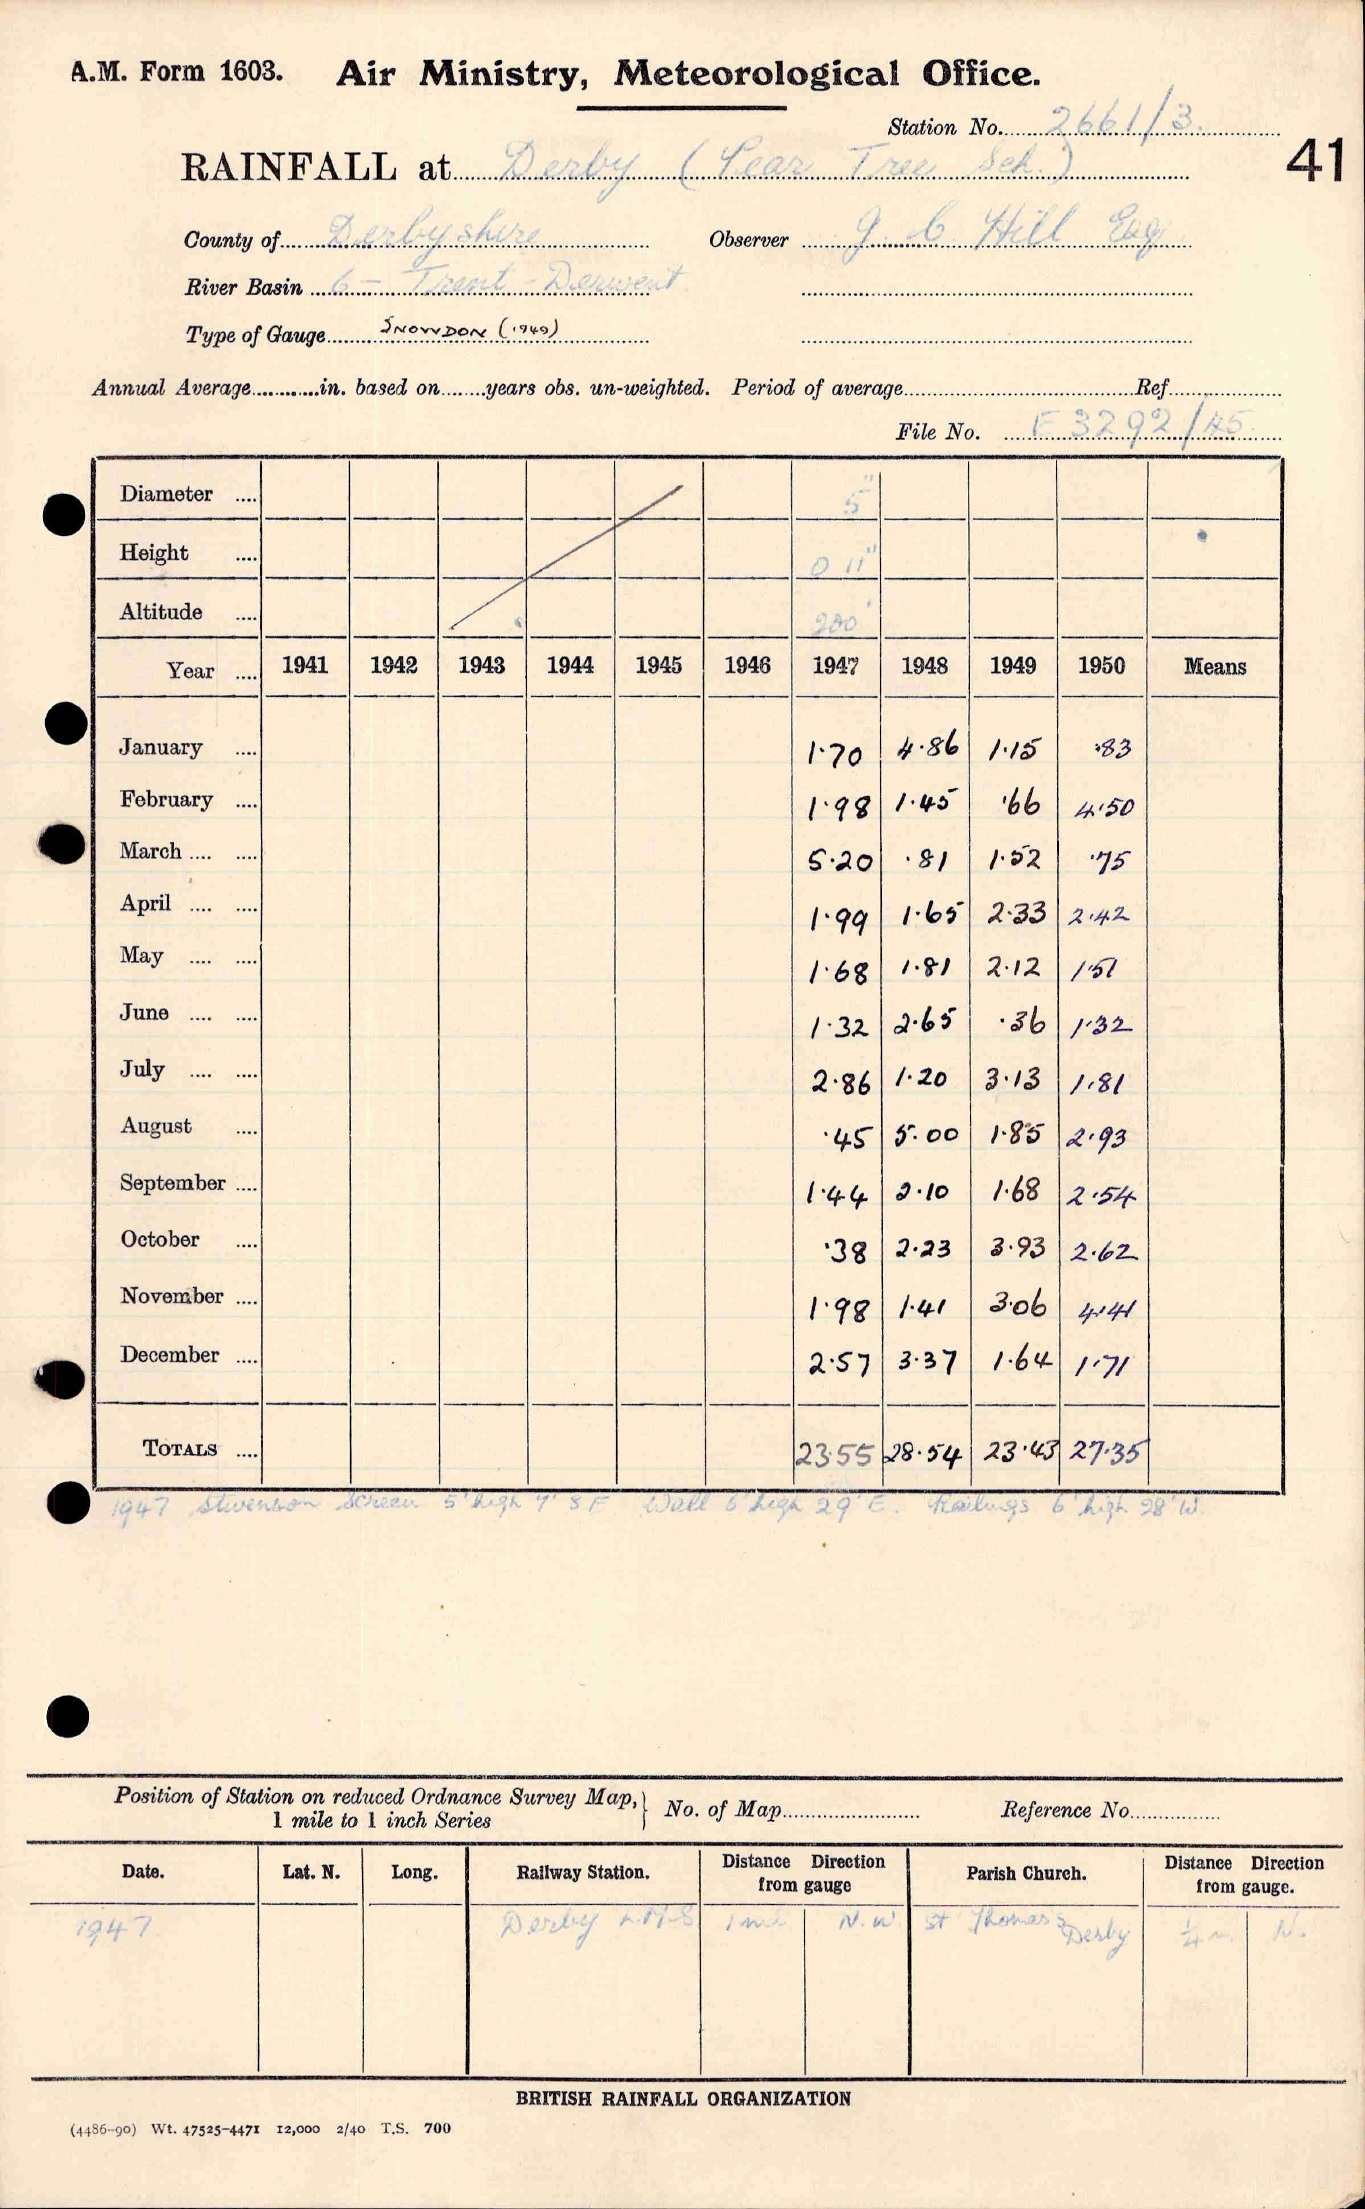 A.M. Form 1603. Air Ministry, Meteorological Office.
Station No. 2661/3.
RAINFALL at Derby (Pear Tree Sch.)
41
County of Derbyshire Observer G. C. Hill Esq
River Basin 6 - Trent - Derwent
Type of Gauge SNOWDON (1949)
Annual Average............in. based on.......years obs. un-weighted. Period of average Ref
File No. E 3292/45
Diameter .... 5"
Height .... 0 11"
Altitude .... 200'
Year .... 1941 1942 1943 1944 1945 1946 1947 1948 1949 1950 Means
January .... 1·70 4·86 1·15 ·83
February .... 1·98 1·45 ·66 4·50
March .... .... 5·20 ·81 1·52 ·75
April .... .... 1·99 1·65 2·33 2·42
May .... .... 1·68 1·81 2·12 1·51
June .... .... 1·32 2·65 ·36 1·32
July .... .... 2·86 1·20 3·13 1·81
August .... ·45 5·00 1·85 2·93
September .... 1·44 2·10 1·68 2·54
October .... ·38 2·23 3·93 2·62
November .... 1·98 1·41 3·06 4·41
December .... 2·57 3·37 1·64 1·71
TOTALS .... 23·55 28·54 23·43 27·35
1947 Stevenson Screen 5' high 7' S E Wall 6' high 29' E. Railings 6' high 28' W.
Position of Station on reduced Ordnance Survey Map, 1 mile to 1 inch Series } No. of Map Reference No.
Date. Lat. N. Long. Railway Station. Distance Direction from gauge Parish Church. Distance Direction from gauge.
1947 Derby L.M.S 1 mi N.W. St Thomas's Derby ¼ m. N.
BRITISH RAINFALL ORGANIZATION
(4486-90) Wt. 47525-4471 12,000 2/40 T.S. 700